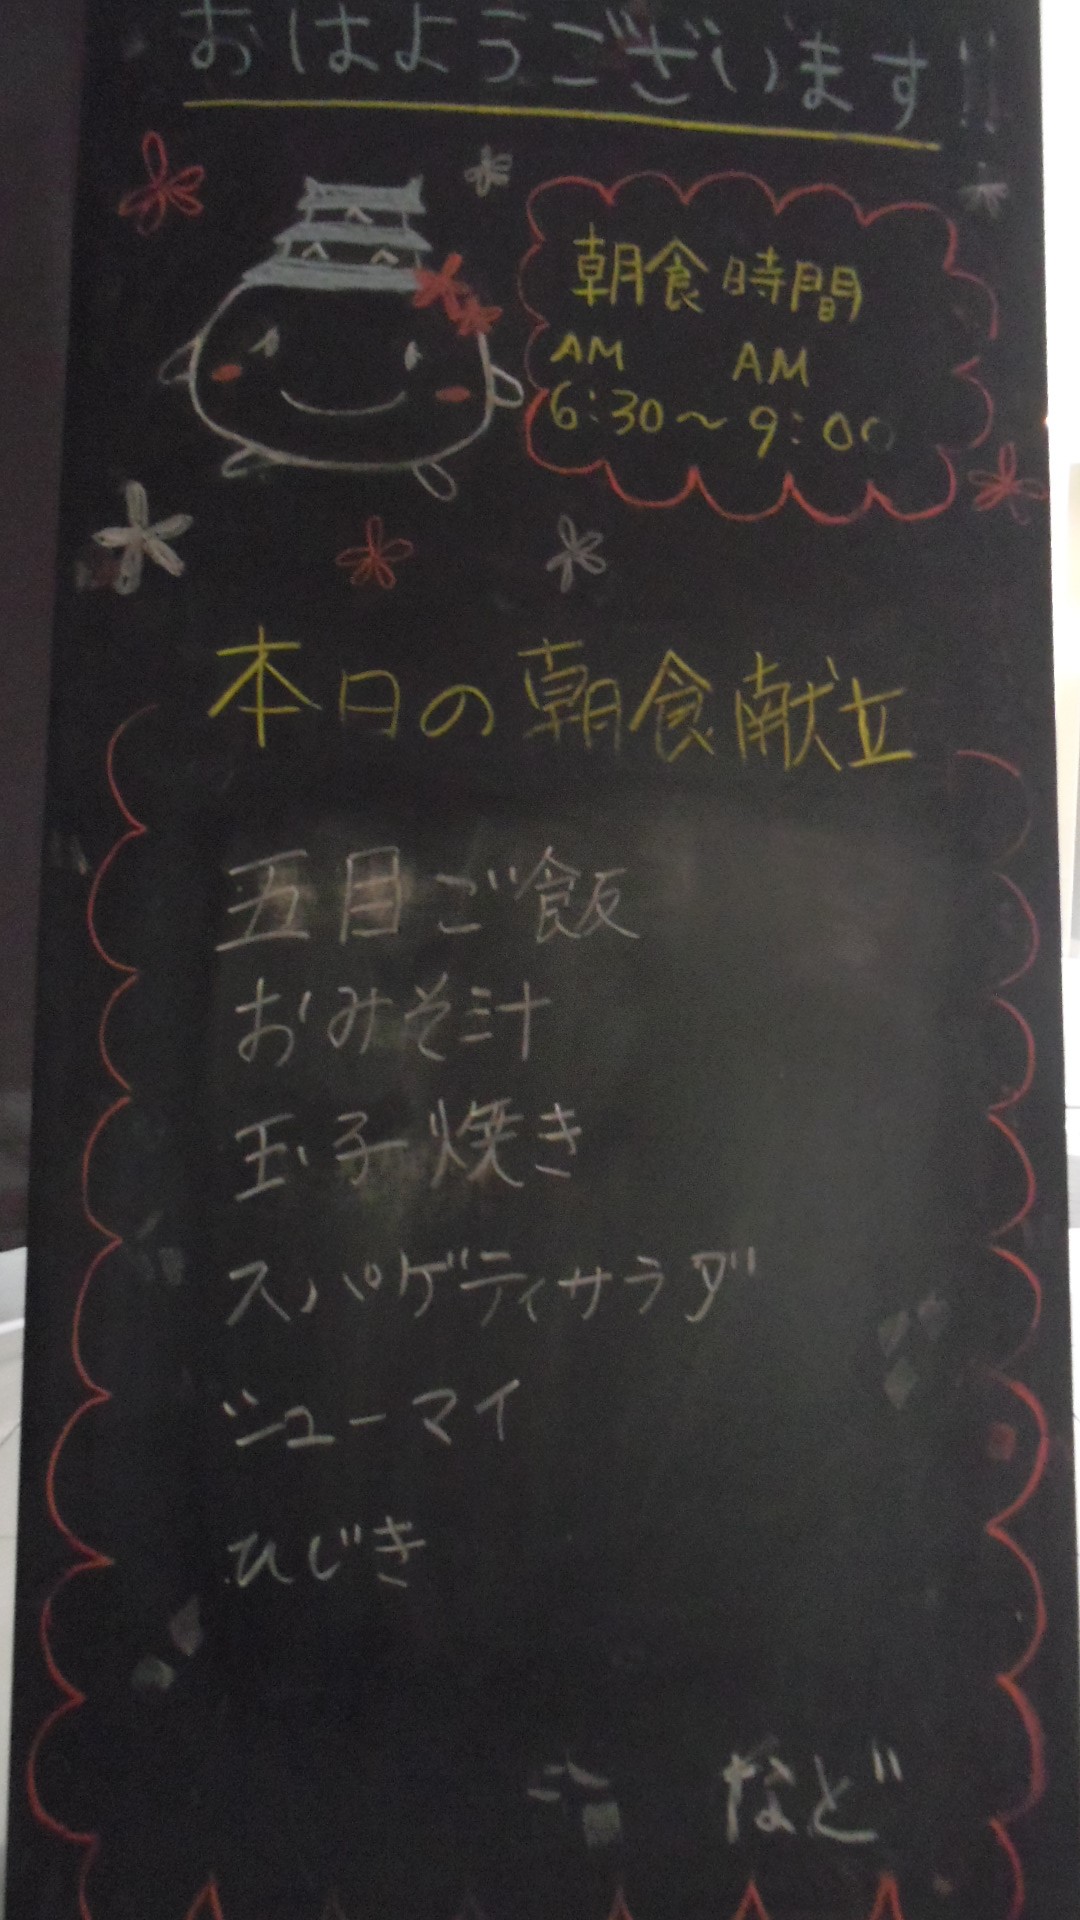 おはようございます!!
朝食時間
AM AM
6:30～9:00
本日の朝食献立
五目ご飯
おみそ汁
玉子焼き
スパゲティサラダ
シューマイ
ひじき
など